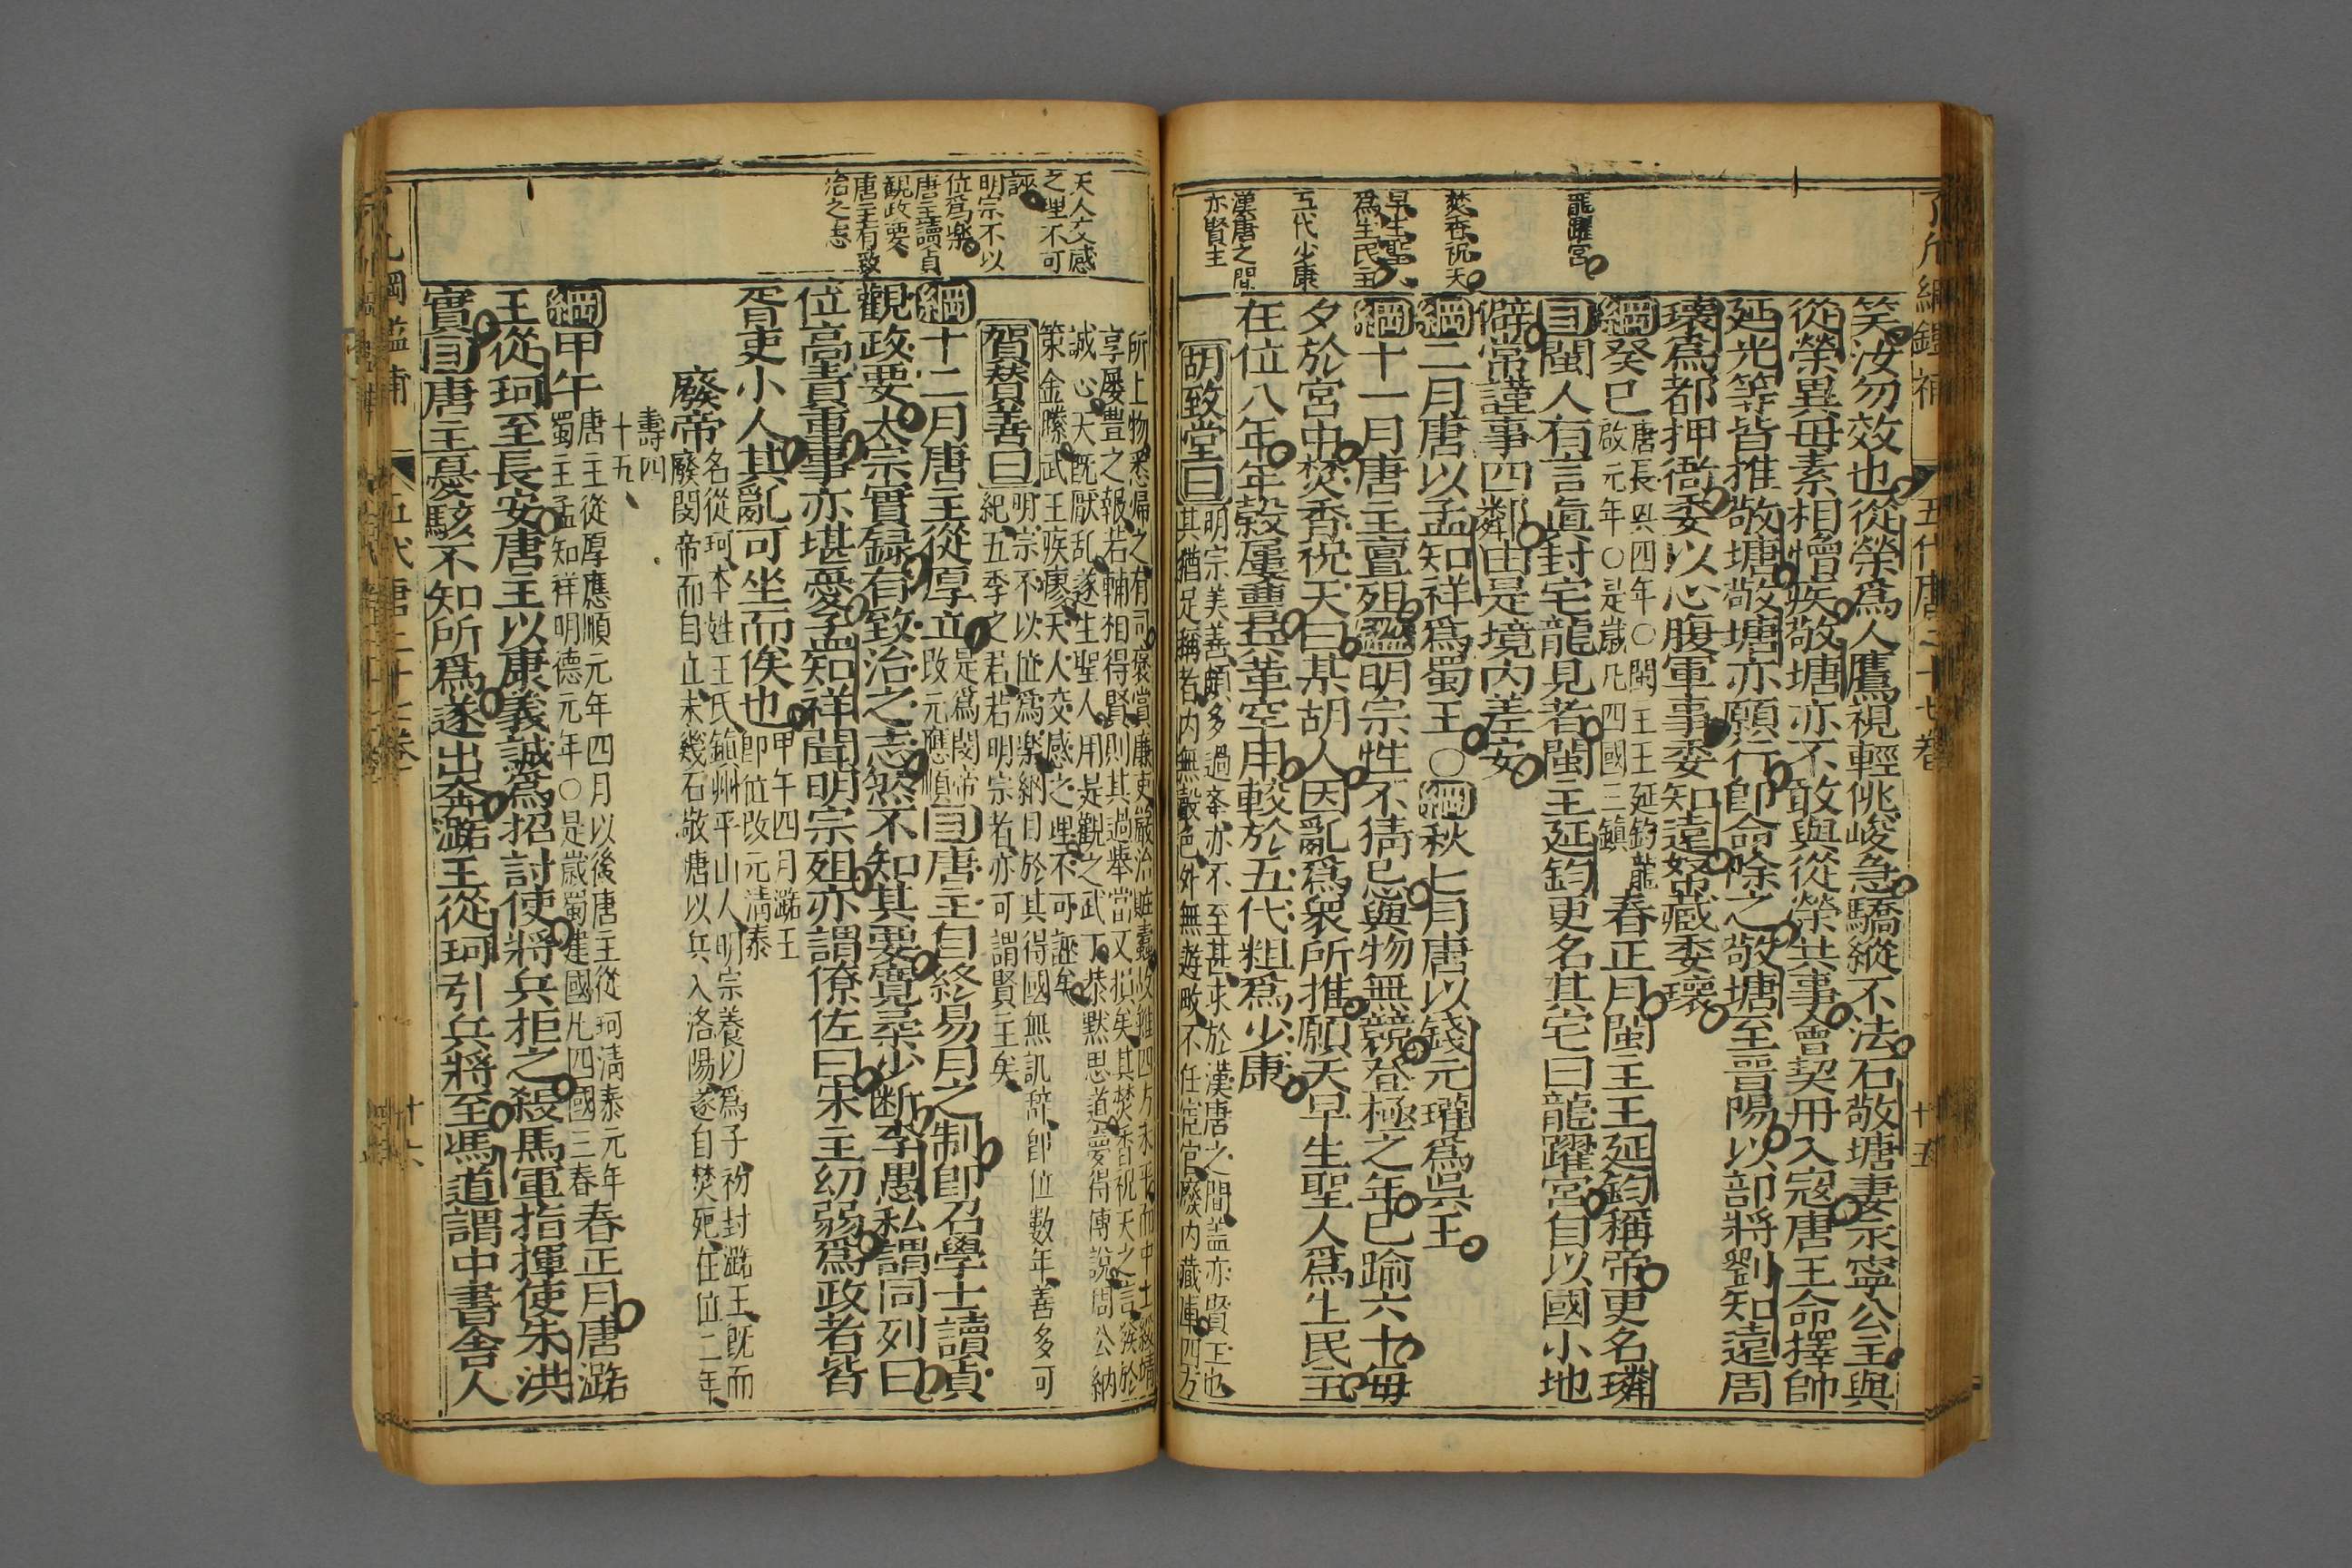 了凡綱鑑補
五代唐二十七卷
十五
龍躍宮
焚香祝天
早生聖人
爲生民主
五代少康
漢唐之間
亦賢主
笑汝勿效也從榮爲人鷹視輕佻峻急驕縱不法石敬塘妻永寧公主與
從榮異母素相憎疾敬塘亦不敢與從榮共事會契丹入寇唐王命擇帥
延光等皆推敬塘敬塘亦願行卽命除之敬塘至晉陽以部將劉知遠周
瓌爲都押衙委以心腹軍事委知遠帑藏委瓌
綱癸巳
唐長興四年○閩王王延鈞龍
啟元年○是歲凡四國三鎮
春正月閩王王延鈞稱帝更名璘
目閩人有言眞封宅龍見者閩王延鈞更名其宅曰龍躍宮自以國小地
僻常謹事四鄰由是境內差安
綱二月唐以孟知祥爲蜀王○綱秋七月唐以錢元瓘爲吳王
綱十一月唐主亶殂鑑明宗性不猜忌與物無競登極之年已踰六十每
夕於宮中焚香祝天曰某胡人因亂爲衆所推願天早生聖人爲生民主
在位八年年穀屢豐兵革罕用較於五代粗爲少康
胡致堂曰
明宗美善頗多過亦不至甚求於漢唐之間蓋亦賢主也
其猶足稱者內無聲色外無遊畋不任宦官廢內藏庫四方
所上物悉歸之有司褒賞廉吏嚴治贓蠹
享屢豐之報若輔相得賢則其過舉當又損矣其焚香祝天之言發於
誠心天旣厭乱遂生聖人用是觀之武丁恭默思道夢得傅說周公納
策金縢武王疾瘳天人交感之理不可誣矣
賀贊善曰
明宗不以位爲樂納日於其得國無訊辭卽位数年善多可
紀五季之君若明宗者亦可謂賢主矣
綱十二月唐主從厚立
是爲閔帝
改元應順
目唐主自終易月之制卽召學士讀貞
觀政要太宗實録有致治之志然不知其要寬柔少斷李愚私謂同列曰
位高責重事亦堪憂孟知祥聞明宗殂亦謂僚佐曰宋主幼弱爲政者皆
胥吏小人其亂可坐而俟也
甲午四月潞王
卽位改元清泰
廢帝
名從珂本姓王氏鎮州平山人明宗養以爲子初封潞王旣而
廢閔帝而自立未幾石敬唐以兵入洛陽遂自焚死在位二年
壽四
十五
綱甲午
唐主從厚應順元年四月以後唐主從珂清泰元年
蜀主孟知祥明德元年○是歲蜀建國凡四國三春
春正月唐潞
王從珂至長安唐王以康義誠爲招討使將兵拒之殺馬軍指揮使朱洪
實目唐主憂駭不知所爲遂出奔潞王從珂引兵將至馮道謂中書舍人
天人交感
之理不可
誣
明宗不以
位爲樂
唐主讀貞
觀政要
唐主有致
治之志
了凡綱鑑補
五代唐二十七卷
十六